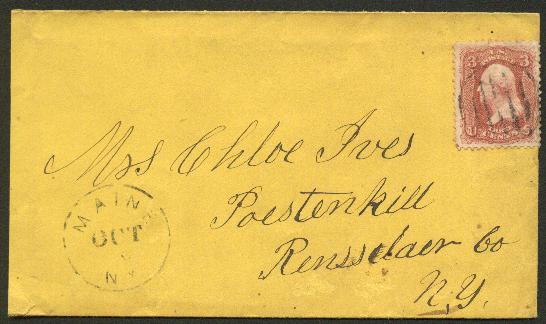 3 3
U
Mrs Chloe Ives
Poestenkill
Rensselaer Co
N.Y.
MAIN
OCT
N.Y.